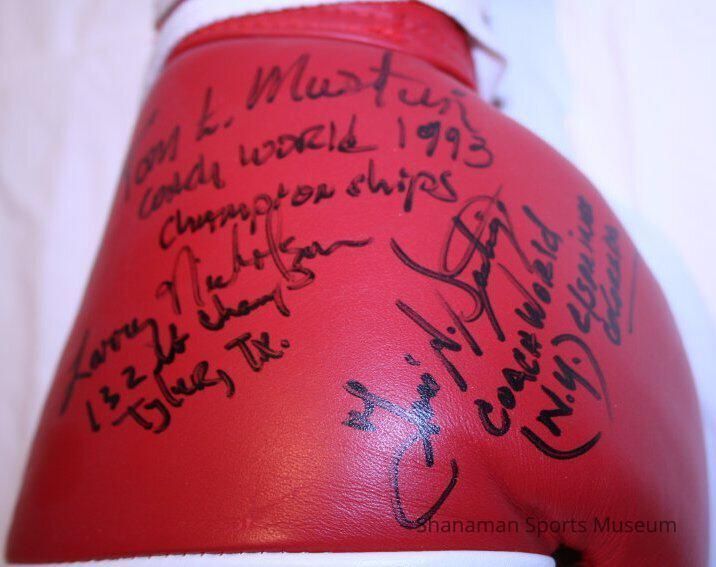 Tom L. Mustin
COACH WORLD 1993
Championships
Larry Nicholson
132 lb champ
Tyler, TX.
COACH WORLD
(N.Y.)
Shanaman Sports Museum